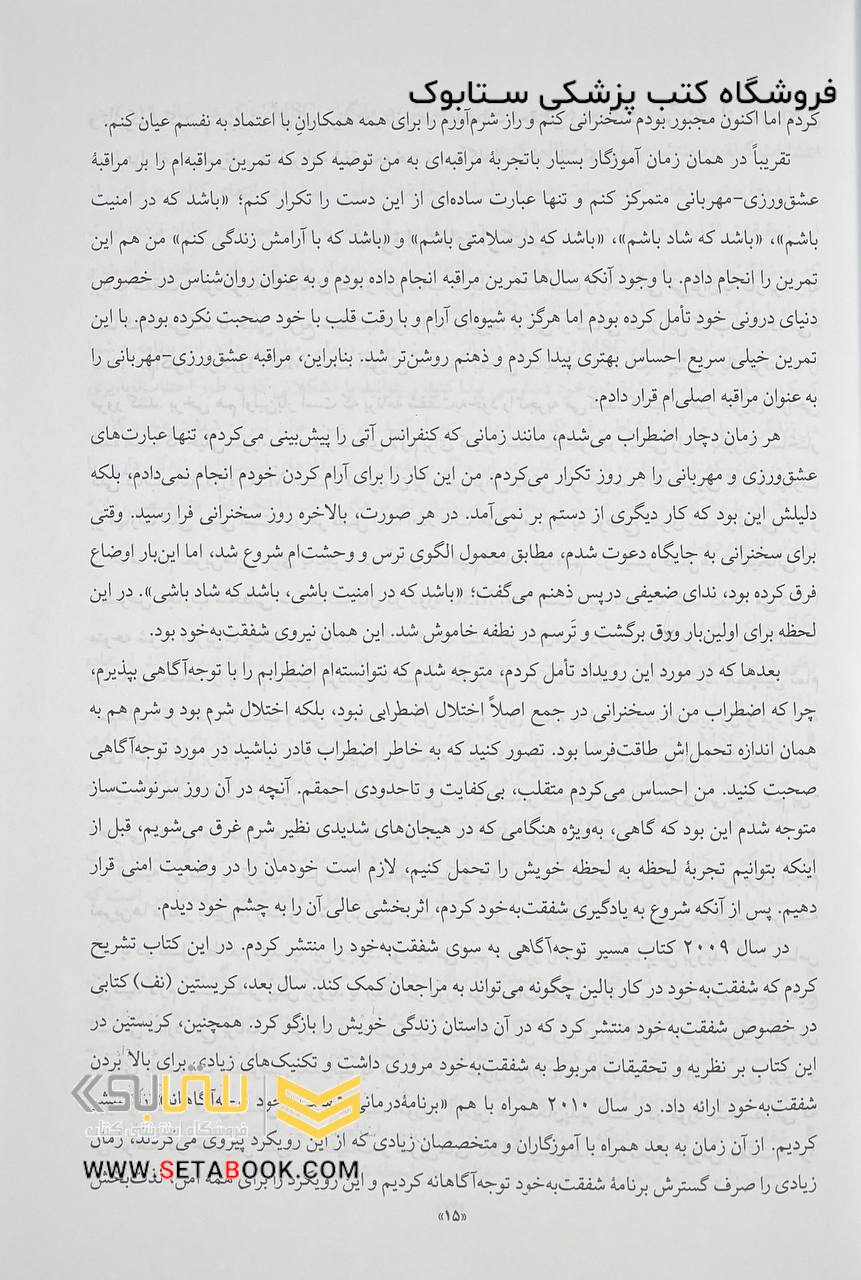 فروشگاه کتب پزشکی ستابوک
کردم اما اکنون مجبور بودم سخنرانی کنم و راز شرم‌آورم را برای همه همکارانِ با اعتماد به نفسم عیان کنم.
تقریباً در همان زمان آموزگار بسیار باتجربهٔ مراقبه‌ای به من توصیه کرد که تمرین مراقبه‌ام را بر مراقبهٔ
عشق‌ورزی-مهربانی متمرکز کنم و تنها عبارت ساده‌ای از این دست را تکرار کنم؛ «باشد که در امنیت
باشم»، «باشد که شاد باشم»، «باشد که در سلامتی باشم» و «باشد که با آرامش زندگی کنم» من هم این
تمرین را انجام دادم. با وجود آنکه سال‌ها تمرین مراقبه انجام داده بودم و به عنوان روان‌شناس در خصوص
دنیای درونی خود تأمل کرده بودم اما هرگز به شیوه‌ای آرام و با رقت قلب با خود صحبت نکرده بودم. با این
تمرین خیلی سریع احساس بهتری پیدا کردم و ذهنم روشن‌تر شد. بنابراین، مراقبه عشق‌ورزی-مهربانی را
به عنوان مراقبه اصلی‌ام قرار دادم.
هر زمان دچار اضطراب می‌شدم، مانند زمانی که کنفرانس آتی را پیش‌بینی می‌کردم، تنها عبارت‌های
عشق‌ورزی و مهربانی را هر روز تکرار می‌کردم. من این کار را برای آرام کردن خودم انجام نمی‌دادم، بلکه
دلیلش این بود که کار دیگری از دستم بر نمی‌آمد. در هر صورت، بالاخره روز سخنرانی فرا رسید. وقتی
برای سخنرانی به جایگاه دعوت شدم، مطابق معمول الگوی ترس و وحشت‌ام شروع شد، اما این‌بار اوضاع
فرق کرده بود، ندای ضعیفی درپس ذهنم می‌گفت؛ «باشد که در امنیت باشی، باشد که شاد باشی». در این
لحظه برای اولین‌بار ورق برگشت و تَرسم در نطفه خاموش شد. این همان نیروی شفقت‌به‌خود بود.
بعدها که در مورد این رویداد تأمل کردم، متوجه شدم که نتوانسته‌ام اضطرابم را با توجه‌آگاهی بپذیرم،
چرا که اضطراب من از سخنرانی در جمع اصلاً اختلال اضطرابی نبود، بلکه اختلال شرم بود و شرم هم به
همان اندازه تحمل‌اش طاقت‌فرسا بود. تصور کنید که به خاطر اضطراب قادر نباشید در مورد توجه‌آگاهی
صحبت کنید. من احساس می‌کردم متقلب، بی‌کفایت و تاحدودی احمقم. آنچه در آن روز سرنوشت‌ساز
متوجه شدم این بود که گاهی، به‌ویژه هنگامی که در هیجان‌های شدیدی نظیر شرم غرق می‌شویم، قبل از
اینکه بتوانیم تجربهٔ لحظه به لحظه خویش را تحمل کنیم، لازم است خودمان را در وضعیت امنی قرار
دهیم. پس از آنکه شروع به یادگیری شفقت‌به‌خود کردم، اثربخشی عالی آن را به چشم خود دیدم.
در سال ۲۰۰۹ کتاب مسیر توجه‌آگاهی به سوی شفقت‌به‌خود را منتشر کردم. در این کتاب تشریح
کردم که شفقت‌به‌خود در کار بالین چگونه می‌تواند به مراجعان کمک کند. سال بعد، کریستین (نف) کتابی
در خصوص شفقت‌به‌خود منتشر کرد که در آن داستان زندگی خویش را بازگو کرد. همچنین، کریستین در
این کتاب بر نظریه و تحقیقات مربوط به شفقت‌به‌خود مروری داشت و تکنیک‌های زیادی برای بالا بردن
شفقت‌به‌خود ارائه داد. در سال ۲۰۱۰ همراه با هم «برنامهٔ‌درمانی
کردیم. از آن زمان به بعد همراه با آموزگاران و متخصصان زیادی که از این رویکرد پیروی می‌کردند، زمان
زیادی را صرف گسترش برنامهٔ شفقت‌به‌خود توجه‌آگاهانه کردیم و این رویکرد را برای همه امن، لذت‌بخش
ستابوک
فروشگاه اینترنتی کتاب
WWW.SETABOOK.COM
«۱۵»